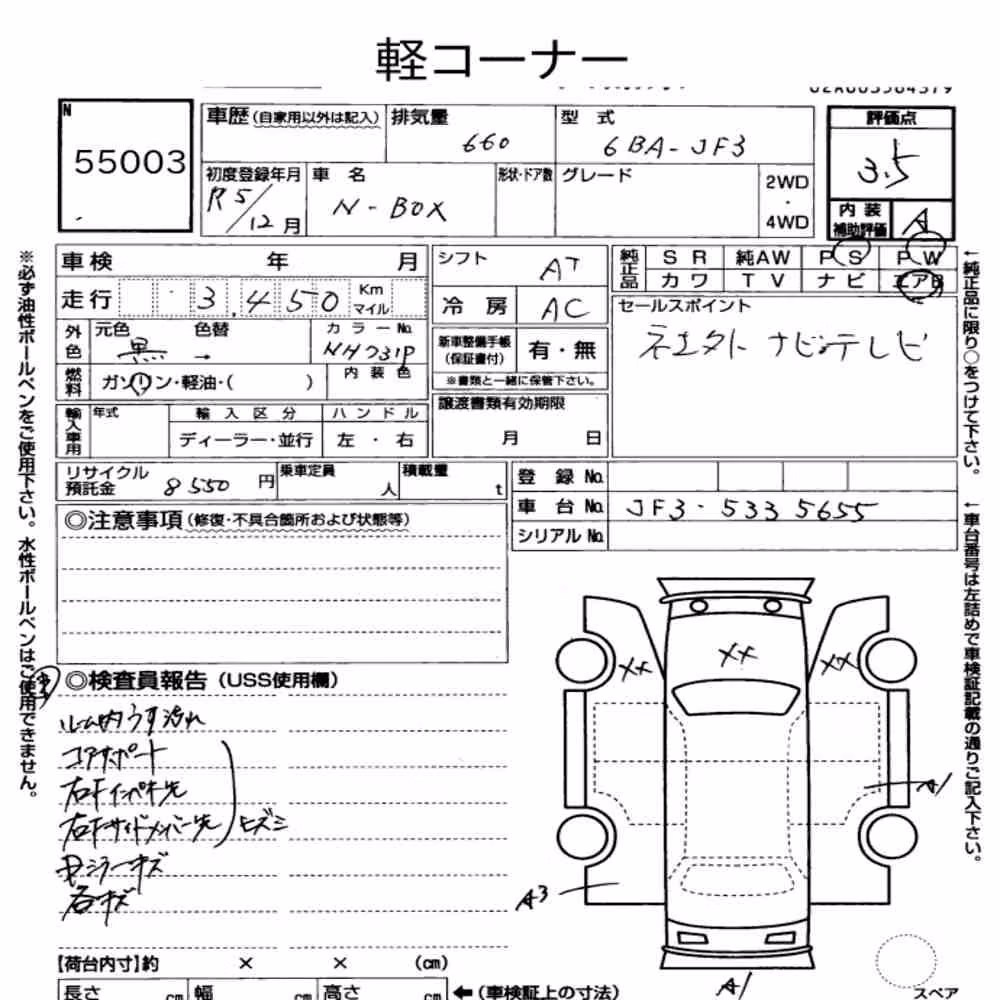 軽コーナー
N
55003
車歴(自家用以外は記入) 排気量 660 型式 6BA-JF3
評価点 3.5
初度登録年月 R5/12月 車名 N-BOX 形状・ドア数 グレード 2WD・4WD
内装補助評価 A
車検 年 月 シフト AT
純正品 SR 純AW PS PW
カワ TV ナビ エアB
走行 3,450 Km マイル 冷房 AC
セールスポイント
ネ土外 ナビ テレビ
外色 元色 黒 色替 → カラーNo. NH731P
新車整備手帳(保証書付) 有・無
※書類と一緒に保管下さい。
燃料 ガソリン・軽油・( ) 内装色
輸入車用 年式 輸入区分 ハンドル
ディーラー・並行 左・右
譲渡書類有効期限
月 日
リサイクル預託金 8550円 乗車定員 人 積載量 t
登録No.
車台No. JF3-5335655
シリアルNo.
◎注意事項(修復・不具合箇所および状態等)
※必ず油性ボールペンをご使用下さい。水性ボールペンはご使用できません。
←純正品に限り○をつけて下さい。
←車台番号は左詰めで車検証記載の通りご記入下さい。
◎検査員報告(USS使用欄)
ルーム内うす汚れ
コアサポート
右Fインパネ先
右Fサイドメンバー先 ヒズミ
ミラーキズ
各キズ
XX XX XX
A1
A3
A1
【荷台内寸】約 × × (cm)
長さ cm 幅 cm 高さ cm ←(車検証上の寸法)
スペア